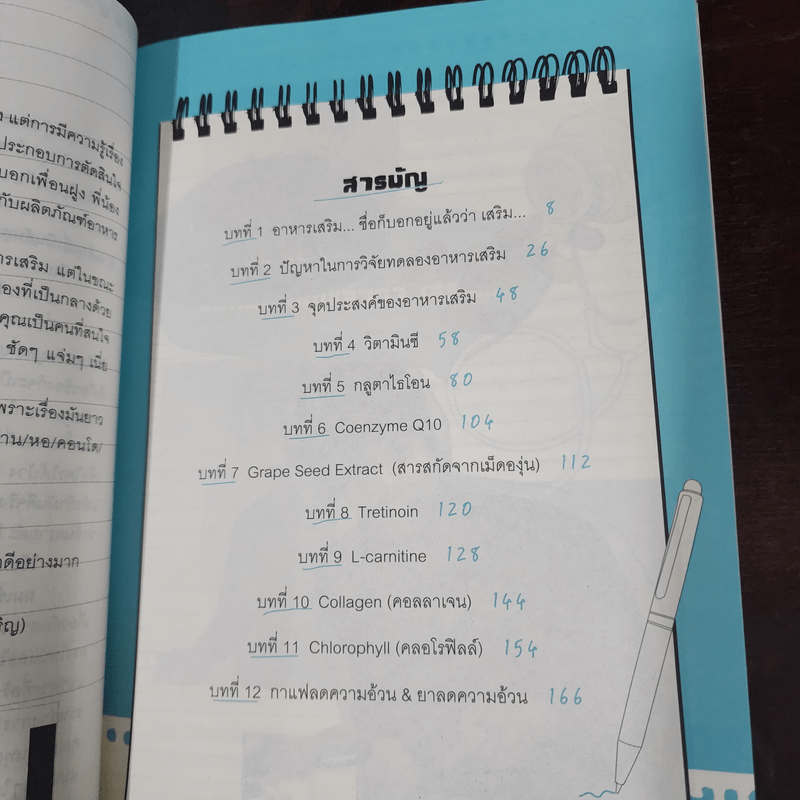 แต่การมีความรู้เรื่อง
ประกอบการตัดสินใจ
บอกเพื่อนฝูง พี่น้อง
กับผลิตภัณฑ์อาหาร
ารเสริม แต่ในขณะ
องที่เป็นกลางด้วย
คุณเป็นคนที่สนใจ
ชัดๆ แจ่มๆ เนี่ย
พราะเรื่องมันยาว
าน/หอ/คอนโด/
ดีอย่างมาก
ริญ)
สารบัญ
บทที่ 1 อาหารเสริม... ชื่อก็บอกอยู่แล้วว่า เสริม... 8
บทที่ 2 ปัญหาในการวิจัยทดลองอาหารเสริม 26
บทที่ 3 จุดประสงค์ของอาหารเสริม 48
บทที่ 4 วิตามินซี 58
บทที่ 5 กลูตาไธโอน 80
บทที่ 6 Coenzyme Q10 104
บทที่ 7 Grape Seed Extract (สารสกัดจากเม็ดองุ่น) 112
บทที่ 8 Tretinoin 120
บทที่ 9 L-carnitine 128
บทที่ 10 Collagen (คอลลาเจน) 144
บทที่ 11 Chlorophyll (คลอโรฟิลล์) 154
บทที่ 12 กาแฟลดความอ้วน & ยาลดความอ้วน 166